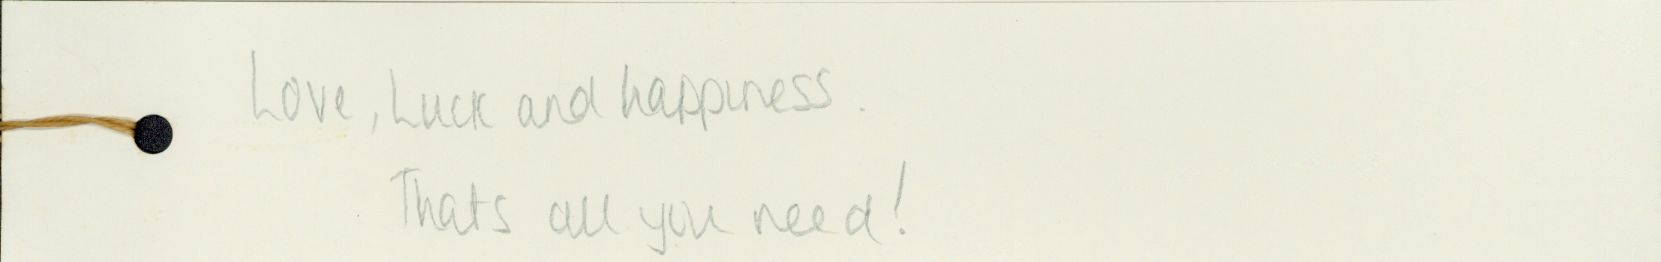 Love, Luck and happiness.
Thats all you need!